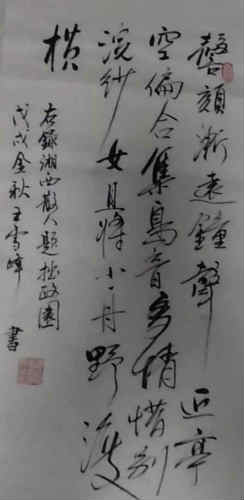 馨顏漸遠鐘聲近亭
空偏合集鳥音多情惜別
浣紗女且將小舟野渡
橫
右錄湘西散人題拙政園
戊戌金秋王雪峰書